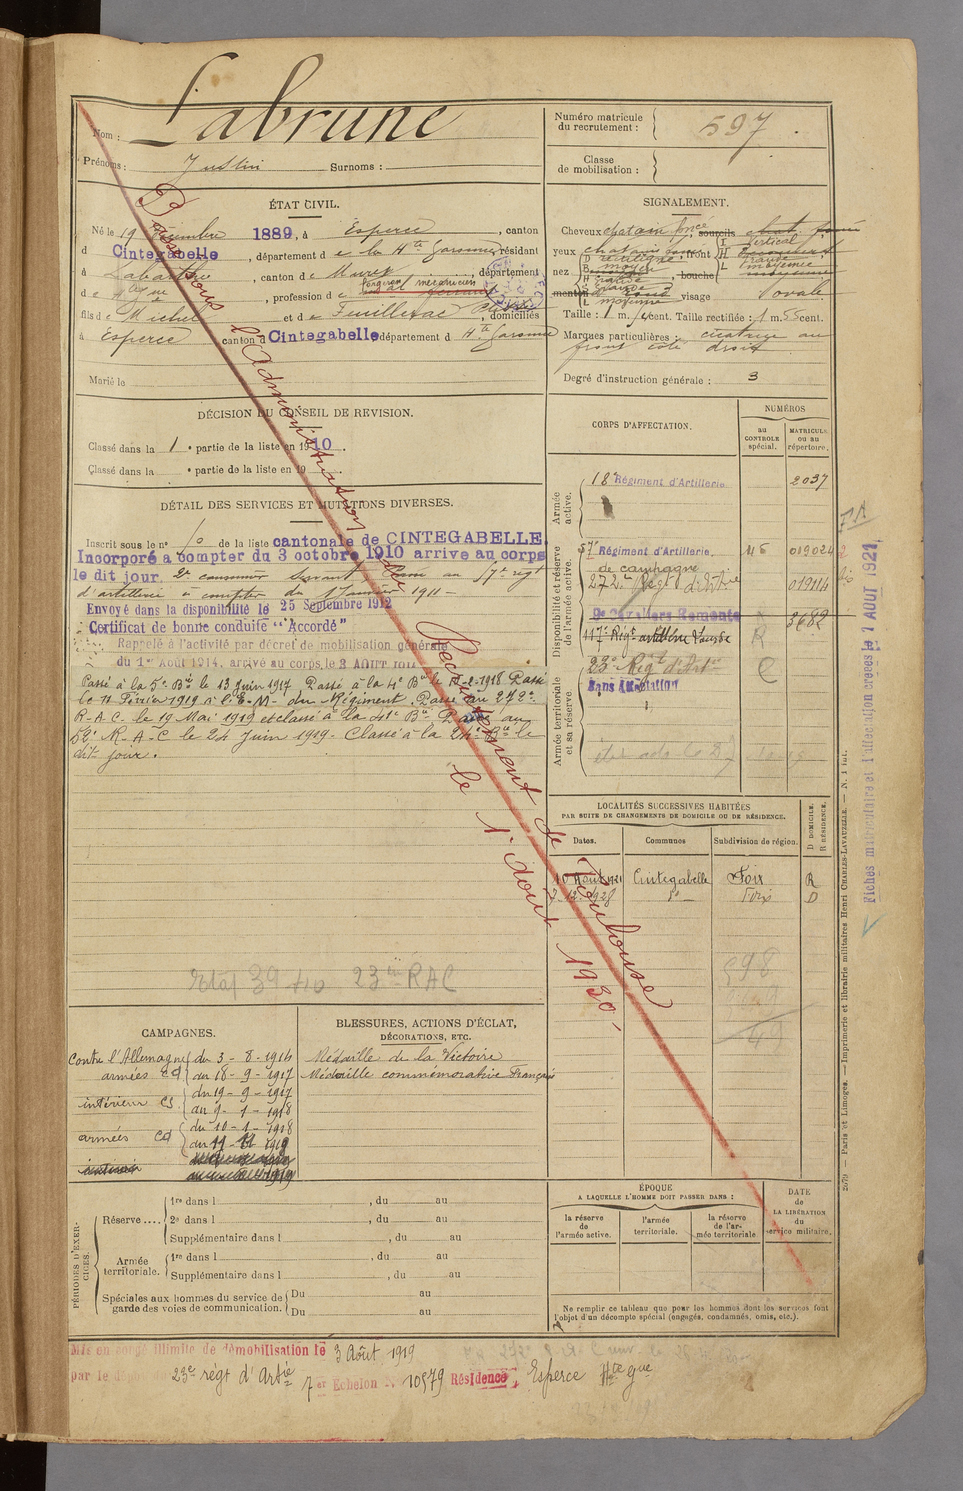 Nom : Labrune
Prénoms : Justin Surnoms :
Numéro matricule du recrutement : 597
Classe de mobilisation :
ÉTAT CIVIL.
Né le 19 Décembre 1889, à Esperce, canton
d Cintegabelle, département de la Hte Garonne, résidant
à Labarthe, canton de Muret, département
de Hte Gne, profession de forgeron et mécanicien
fils de Michel et de Feuillerac, domiciliés
à Esperce, canton d Cintegabelle département d Hte Garonne
Marié le
SIGNALEMENT.
Cheveux chatain foncé, sourcils
yeux chatain, front I vertical
nez, bouche
menton visage ovale
Taille : 1 m. cent. Taille rectifiée : 1 m. 55 cent.
Marques particulières : cicatrice au
front côté droit
Degré d'instruction générale : 3
DÉCISION DU CONSEIL DE REVISION.
Classé dans la 1e partie de la liste en 1910.
Classé dans la e partie de la liste en 19
DÉTAIL DES SERVICES ET MUTATIONS DIVERSES.
Inscrit sous le no de la liste cantonale de CINTEGABELLE.
Incorporé à compter du 3 octobre 1910 arrivé au corps
le dit jour. 2e canonnier servant. Passé au 57e régt
d'artillerie à compter du 1 Janvier 1911 —
Envoyé dans la disponibilité le 25 Septembre 1912
Certificat de bonne conduite "Accordé"
Rappelé à l'activité par décret de mobilisation générale
du 1er Août 1914, arrivé au corps le 3 AOUT 1914
Passé à la 5e Bie le 13 Juin 1917 Passé à la 4e Bie le 12-2-1918 Passé
le 11 Février 1919 à l'E-M- du Régiment. Passé au 272e
R-A-C. le 19 Mai 1919 et classé à la 41e Bie Passé au
52e R-A-C le 24 Juin 1919. Classé à la 24e Bie le
dit jour.
Etat 39 23me RAC
Passé sous l'Administration du Recrutement de Toulouse
le 1er août 1930
CORPS D'AFFECTATION.
NUMÉROS
au CONTROLE spécial.
MATRICULE ou au répertoire.
Armée active.
18e Régiment d'Artillerie 2037
Disponibilité et réserve de l'armée active.
57e Régiment d'Artillerie 019024
de campagne
272e Régt d'Artie 019114
9e Cavaliers Remonte 3682
117e Régt artillerie Lourde R
23e Régt d'Artie C
Sans Affectation
Armée territoriale et sa réserve
LOCALITÉS SUCCESSIVES HABITÉES
PAR SUITE DE CHANGEMENTS DE DOMICILE OU DE RÉSIDENCE.
Dates. Communes Subdivision de région. D DOMICILE. R RÉSIDENCE.
10 Août 1921 Cintegabelle Foix R
12-1928 do Foix D
598
Fiches matriculaire et d'affectation créées le 7 AOUT 1921
2679 — Paris et Limoges. — Imprimerie et librairie militaires Henri CHARLES-LAVAUZELLE. — N. 1 int.
CAMPAGNES.
Contre l'Allemagne
armées CD du 3-8-1914
au 18-9-1917
intérieur CS du 19-9-1917
au 9-1-1918
armées CD du 10-1-1918
BLESSURES, ACTIONS D'ÉCLAT,
DÉCORATIONS, ETC.
Médaille de la Victoire
Médaille commémorative Française
PÉRIODES D'EXERCICES.
Réserve .... 1re dans l , du au
2e dans l , du au
Supplémentaire dans l , du au
Armée territoriale. 1re dans l , du au
Supplémentaire dans l , du au
Spéciales aux hommes du service de garde des voies de communication. Du au
Du au
ÉPOQUE
A LAQUELLE L'HOMME DOIT PASSER DANS :
la réserve de l'armée active.
l'armée territoriale.
la réserve de l'armée territoriale
DATE de LA LIBÉRATION du service militaire.
Ne remplir ce tableau que pour les hommes dont les services font
l'objet d'un décompte spécial (engagés, condamnés, omis, etc.).
Mis en congé illimité de démobilisation le 3 Août 1919
par le dépôt du 23e régt d'Artie 7e Echelon N. 10579 Résidence, Esperce Hte Gne